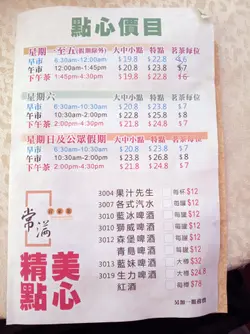 點心價目
星期一至五(假期除外) 大中小點 特點 茗茶每位
早市 6:30am-12:00am $19.8 $22.8 $6
午市 12:00am-1:45pm $20.8 $23.8 $7
下午茶 1:45pm-4:30pm $19.8 $22.8 $6
星期六 大中小點 特點 茗茶每位
早市 6:30am-10:30am $20.8 $23.8 $7
午市 10:30am-2:00pm $23.8 $26.8 $7
下午茶 2:00pm-4:30pm $21.8 $24.8 $7
星期日及公眾假期 大中小點 特點 茗茶每位
早市 6:30am-10:30am $20.8 $23.8 $7
午市 10:30am-2:00pm $23.8 $26.8 $8
下午茶 2:00pm-4:30pm $21.8 $24.8 $7
常滿
精點
美心
3004 果汁先生 $12
3007 各式汽水 $12
3010 藍冰啤酒 $12
3010 獅威啤酒 $12
3012 森堡啤酒 $12
青島啤酒 $12
3013 藍妹啤酒 大樽 $32
3019 生力啤酒 大樽 $24.8
紅酒 $78
另加一服務費